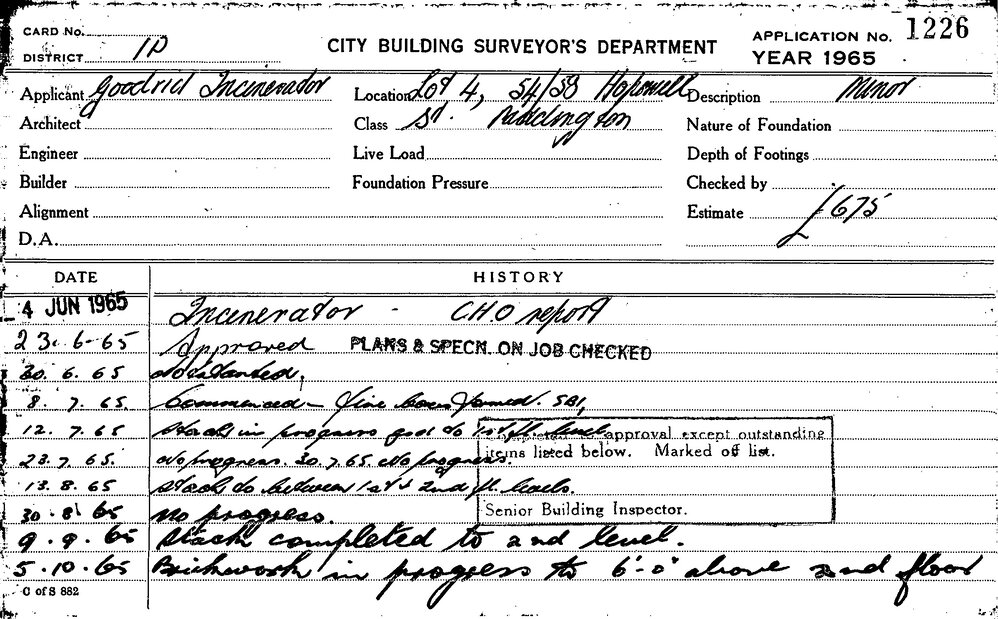 CARD No.
DISTRICT 1P
CITY BUILDING SURVEYOR'S DEPARTMENT
APPLICATION No. 1226
YEAR 1965
Applicant Goodrid Incinerator
Location Lot 4, 54/58 Hopewell
Description Minor
Architect
Class St. Paddington
Nature of Foundation
Engineer
Live Load
Depth of Footings
Builder
Foundation Pressure
Checked by
Alignment
Estimate £675
D.A.
DATE
HISTORY
4 JUN 1965 Incinerator - C.H.O report
23.6-65 Approved PLANS & SPECN. ON JOB CHECKED
30.6.65 Not started
8.7.65. Commenced - formed. SBI,
12.7.65 Stack in progress to 1st fl. level
Completed approval except outstanding
items listed below. Marked off list.
23.7.65. No progress. 30.7.65. No progress.
13.8.65 Stack to between 1st & 2nd fl. levels.
30.8.65 No progress.
Senior Building Inspector.
9.9.65 Stack completed to 2nd level.
5.10.65 Brickwork in progress to 6'-0" above 2nd floor
C of S 882